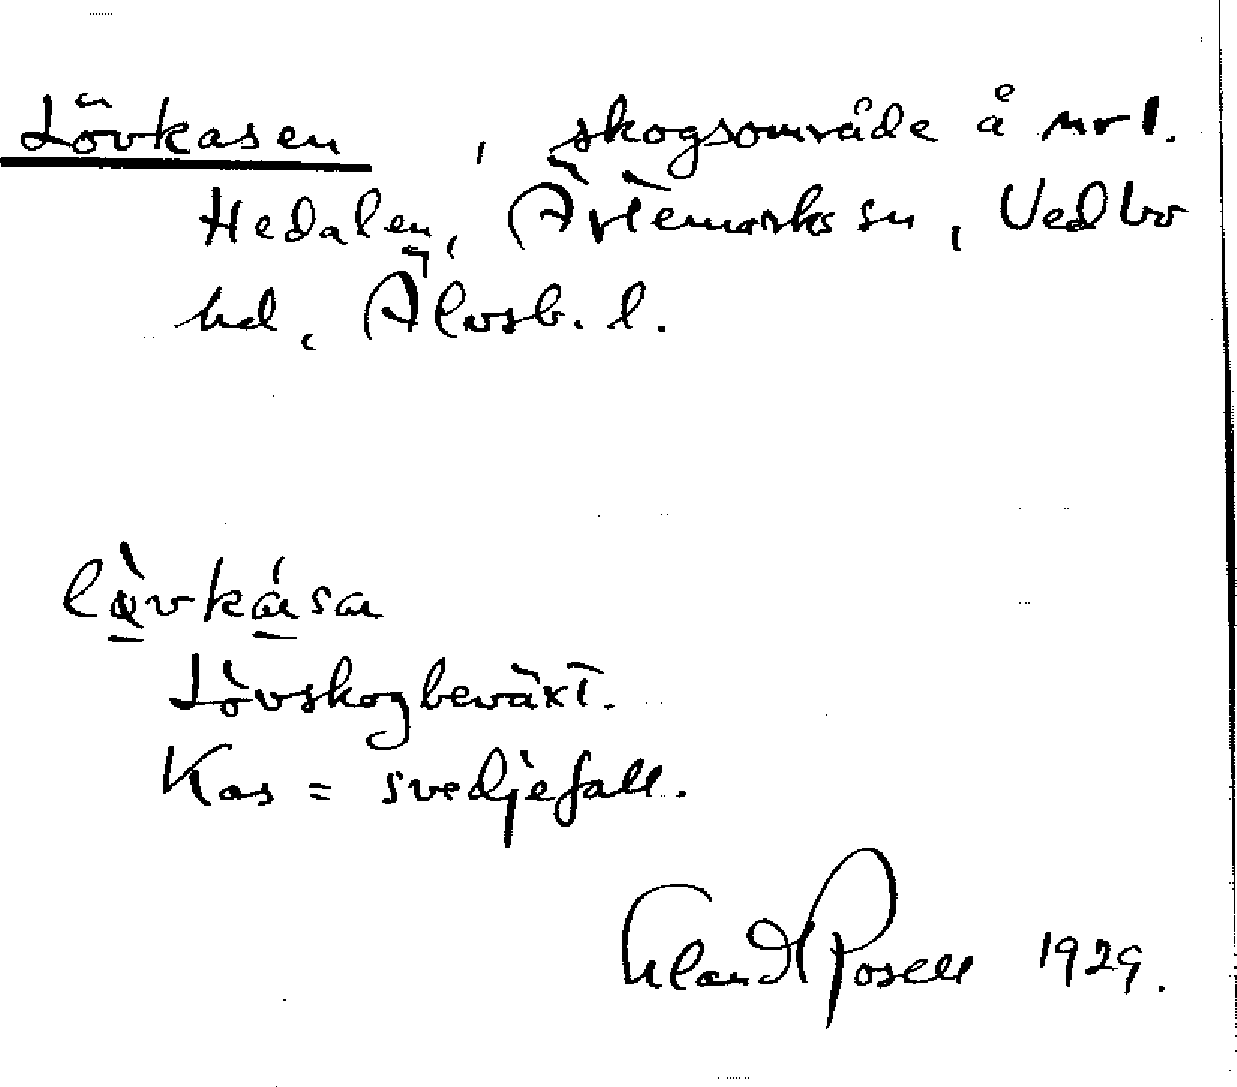 Lövkasen, skogsområde å nr 1.
Hedalen, Ärtemarks sn, Vedbo
hd, Älvsb. l.
Lövskogbeväxt.
Kas = svedjefall.
Erland Rosell 1929.